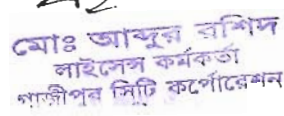 মোঃ আব্দুর রশিদ
লাইসেন্স কর্মকর্তা
গাজীপুর সিটি কর্পোরেশন